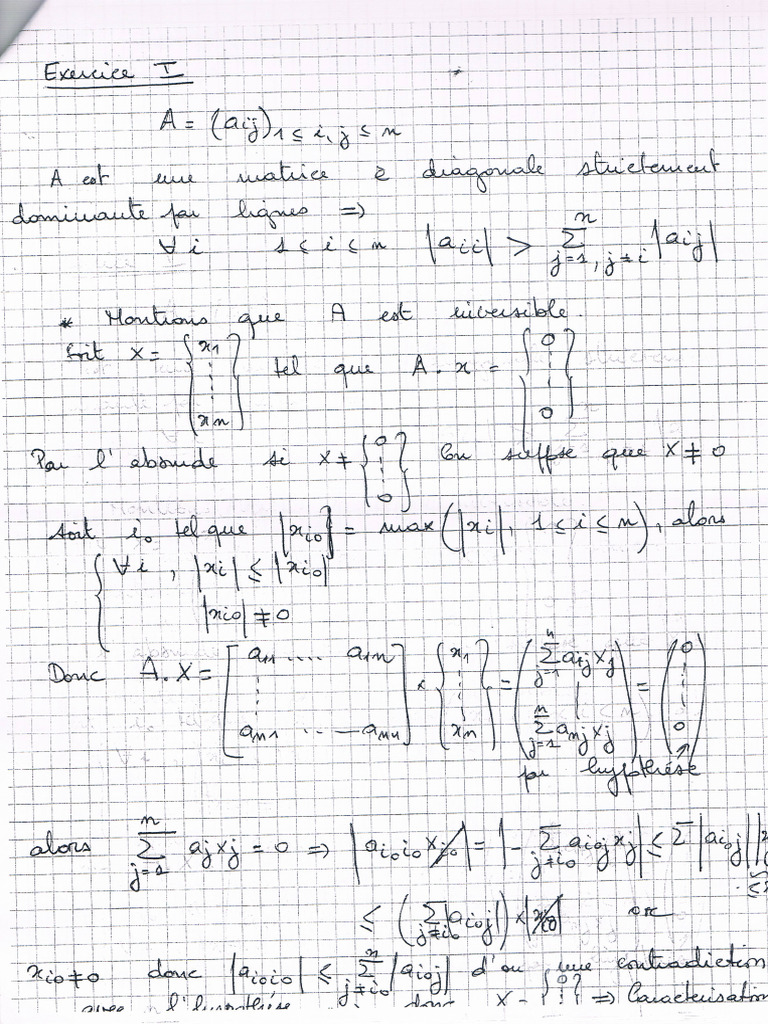 Exercice I
A = (aij)1 ≤ i, j ≤ n
A est une matrice à diagonale strictement
dominante par lignes =>
∀ i 1 ≤ i ≤ n |aii| > ∑_{j=1, j≠i}^{n} |aij|
* Montrons que A est inversible.
Soit X = {x1 ⋮ xn} tel que A . x = {0 ⋮ 0}
Par l'absurde si X ≠ {0 ⋮ 0} On suppse que X ≠ 0
soit i0 tel que |xi0| = max (|xi|, 1 ≤ i ≤ n), alors
{ ∀ i , |xi| ≤ |xi0|
|xi0| ≠ 0
Donc A . X = [a11 .... a1n ⋮ an1 ... ann] × {x1 ⋮ xn} = (∑_{j=1}^{n} a1j xj | ∑_{j=1}^{n} anj xj) = (0 ⋮ 0)
par hypothése
alors ∑_{j=1}^{n} aj xj = 0 => |ai0i0 xi0| = |- ∑_{j≠i0} ai0j xj| ≤ ∑ |ai0j|
≤ (∑_{j≠i0} |ai0j|) × |xi0| or
xi0 ≠ 0 donc |ai0i0| ≤ ∑_{j≠i0}^{n} |ai0j| d'ou une contradiction
avec l'hypothése donc X = {0 => Caracterisation